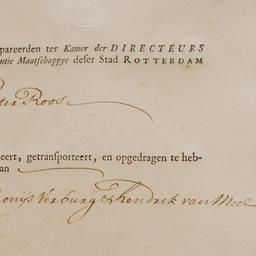 pareerden ter Kamer der DIRECTEURS
ntie Maatschappye deser Stad ROTTERDAM
ter Roos
eert, getransporteert, en opgedragen te heb-
an
onijs Verburg & Hendrik van Meel